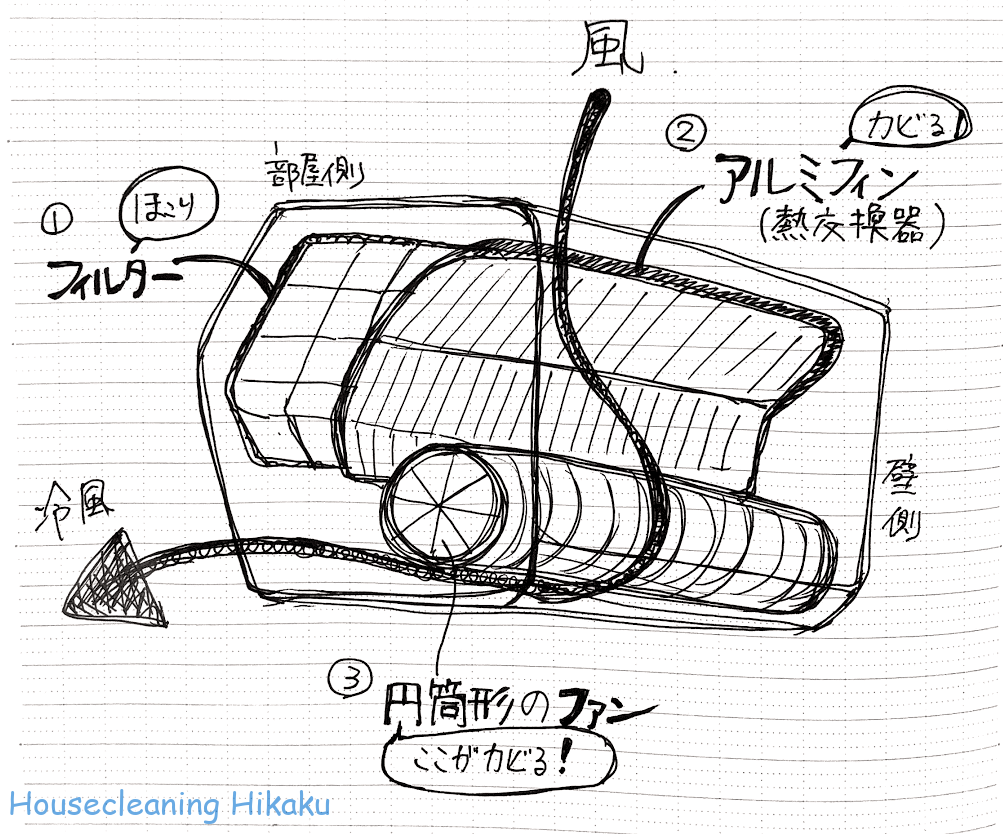 風
②
カビる
アルミフィン
(熱交換器)
部屋側
①
ほこり
フィルター
壁側
冷風
③
円筒形のファン
ここがカビる!
Housecleaning Hikaku